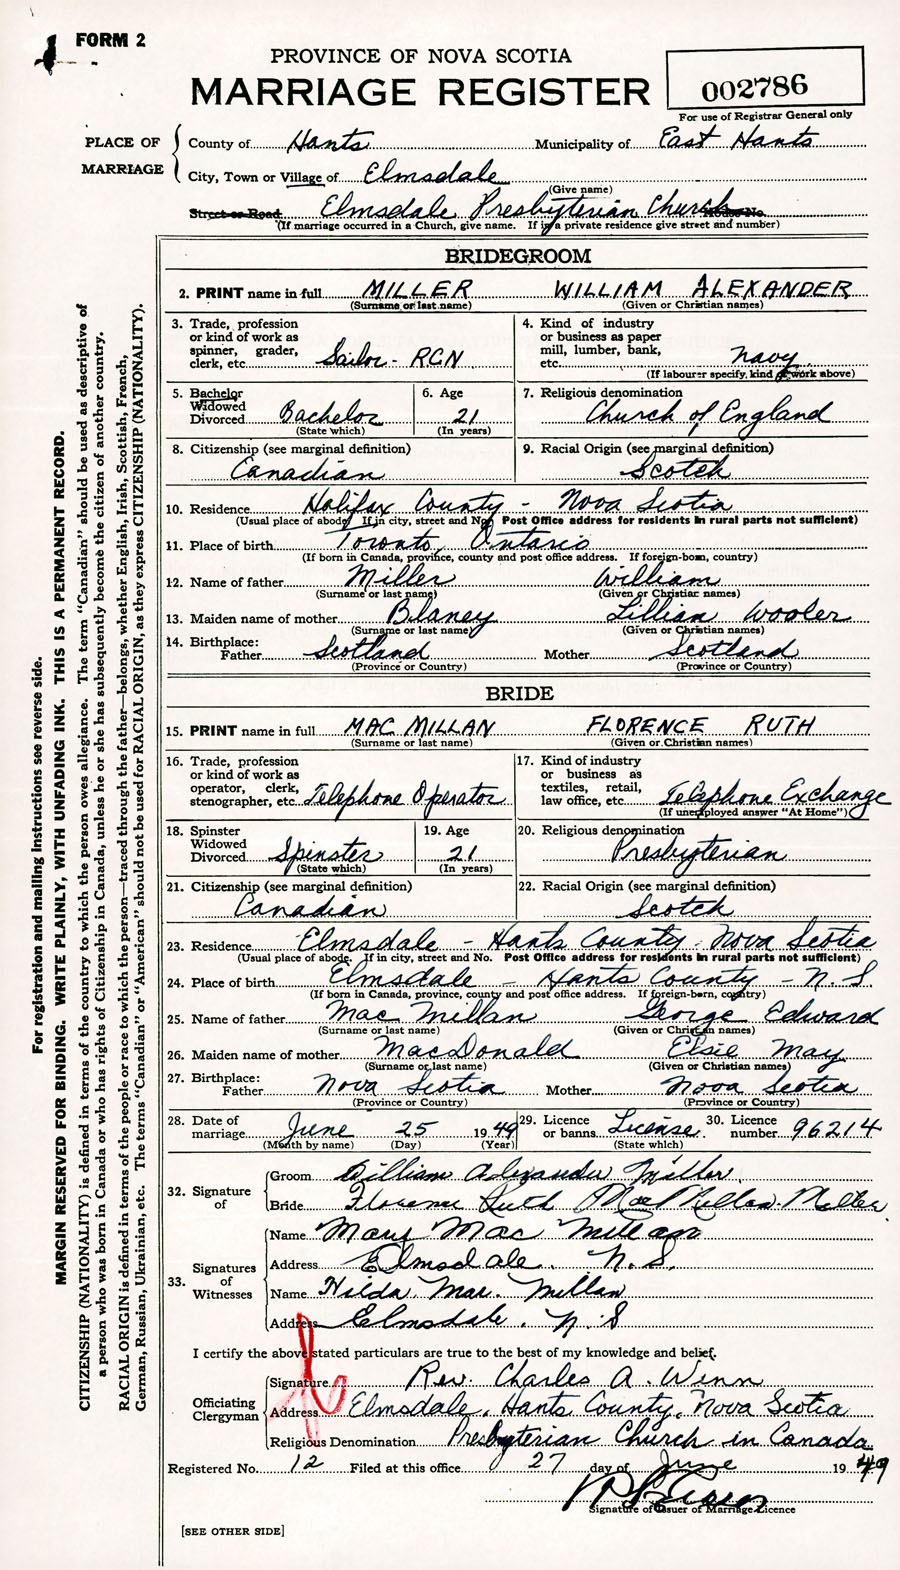 FORM 2
PROVINCE OF NOVA SCOTIA
MARRIAGE REGISTER
002786
For use of Registrar General only
PLACE OF MARRIAGE
County of Hants Municipality of East Hants
City, Town or Village of Elmsdale
(Give name)
Street or Road Elmsdale Presbyterian Church House No.
(If marriage occurred in a Church, give name. If in a private residence give street and number)
BRIDEGROOM
2. PRINT name in full MILLER WILLIAM ALEXANDER
(Surname or last name) (Given or Christian names)
3. Trade, profession or kind of work as spinner, grader, clerk, etc. Sailor - RCN
4. Kind of industry or business as paper mill, lumber, bank, etc. Navy
(If labourer specify kind of work above)
5. Bachelor Widowed Divorced Bachelor
(State which)
6. Age 21
(In years)
7. Religious denomination
Church of England
8. Citizenship (see marginal definition)
Canadian
9. Racial Origin (see marginal definition)
Scotch
10. Residence Halifax County - Nova Scotia
(Usual place of abode. If in city, street and No. Post Office address for residents in rural parts not sufficient)
11. Place of birth Toronto, Ontario
(If born in Canada, province, county and post office address. If foreign-born, country)
12. Name of father Miller William
(Surname or last name) (Given or Christian names)
13. Maiden name of mother Blaney Lillian Wooler
(Surname or last name) (Given or Christian names)
14. Birthplace:
Father Scotland Mother Scotland
(Province or Country) (Province or Country)
BRIDE
15. PRINT name in full MAC MILLAN FLORENCE RUTH
(Surname or last name) (Given or Christian names)
16. Trade, profession or kind of work as operator, clerk, stenographer, etc. Telephone Operator
17. Kind of industry or business as textiles, retail, law office, etc. Telephone Exchange
(If unemployed answer "At Home")
18. Spinster Widowed Divorced Spinster
(State which)
19. Age 21
(In years)
20. Religious denomination
Presbyterian
21. Citizenship (see marginal definition)
Canadian
22. Racial Origin (see marginal definition)
Scotch
23. Residence Elmsdale - Hants County - Nova Scotia
(Usual place of abode. If in city, street and No. Post Office address for residents in rural parts not sufficient)
24. Place of birth Elmsdale - Hants County - N. S
(If born in Canada, province, county and post office address. If foreign-born, country)
25. Name of father Mac Millan George Edward
(Surname or last name) (Given or Christian names)
26. Maiden name of mother MacDonald Elsie May
(Surname or last name) (Given or Christian names)
27. Birthplace:
Father Nova Scotia Mother Nova Scotia
(Province or Country) (Province or Country)
28. Date of marriage June 25 1949
(Month by name) (Day) (Year)
29. Licence or banns License
(State which)
30. Licence number 96214
32. Signature of
Groom William Alexander Miller
Bride Florence Ruth MacMillan-Miller
33. Signatures of Witnesses
Name Mary Mac Millan
Address Elmsdale. N. S.
Name Hilda Mac Millan
Address Elmsdale. N. S
I certify the above stated particulars are true to the best of my knowledge and belief.
Officiating Clergyman
Signature Rev. Charles A. Winn
Address Elmsdale, Hants County, Nova Scotia
Religious Denomination Presbyterian Church in Canada
Registered No. 12 Filed at this office 27 day of June 1949
Signature of Issuer of Marriage Licence
[SEE OTHER SIDE]
For registration and mailing instructions see reverse side.
MARGIN RESERVED FOR BINDING. WRITE PLAINLY, WITH UNFADING INK. THIS IS A PERMANENT RECORD.
CITIZENSHIP (NATIONALITY) is defined in terms of the country to which the person owes allegiance. The term "Canadian" should be used as descriptive of
a person who was born in Canada or who has rights of Citizenship in Canada, unless he or she has subsequently become the citizen of another country.
RACIAL ORIGIN is defined in terms of the people or race to which the person—traced through the father—belongs, whether English, Irish, Scottish, French,
German, Russian, Ukrainian, etc. The terms "Canadian" or "American" should not be used for RACIAL ORIGIN, as they express CITIZENSHIP (NATIONALITY).